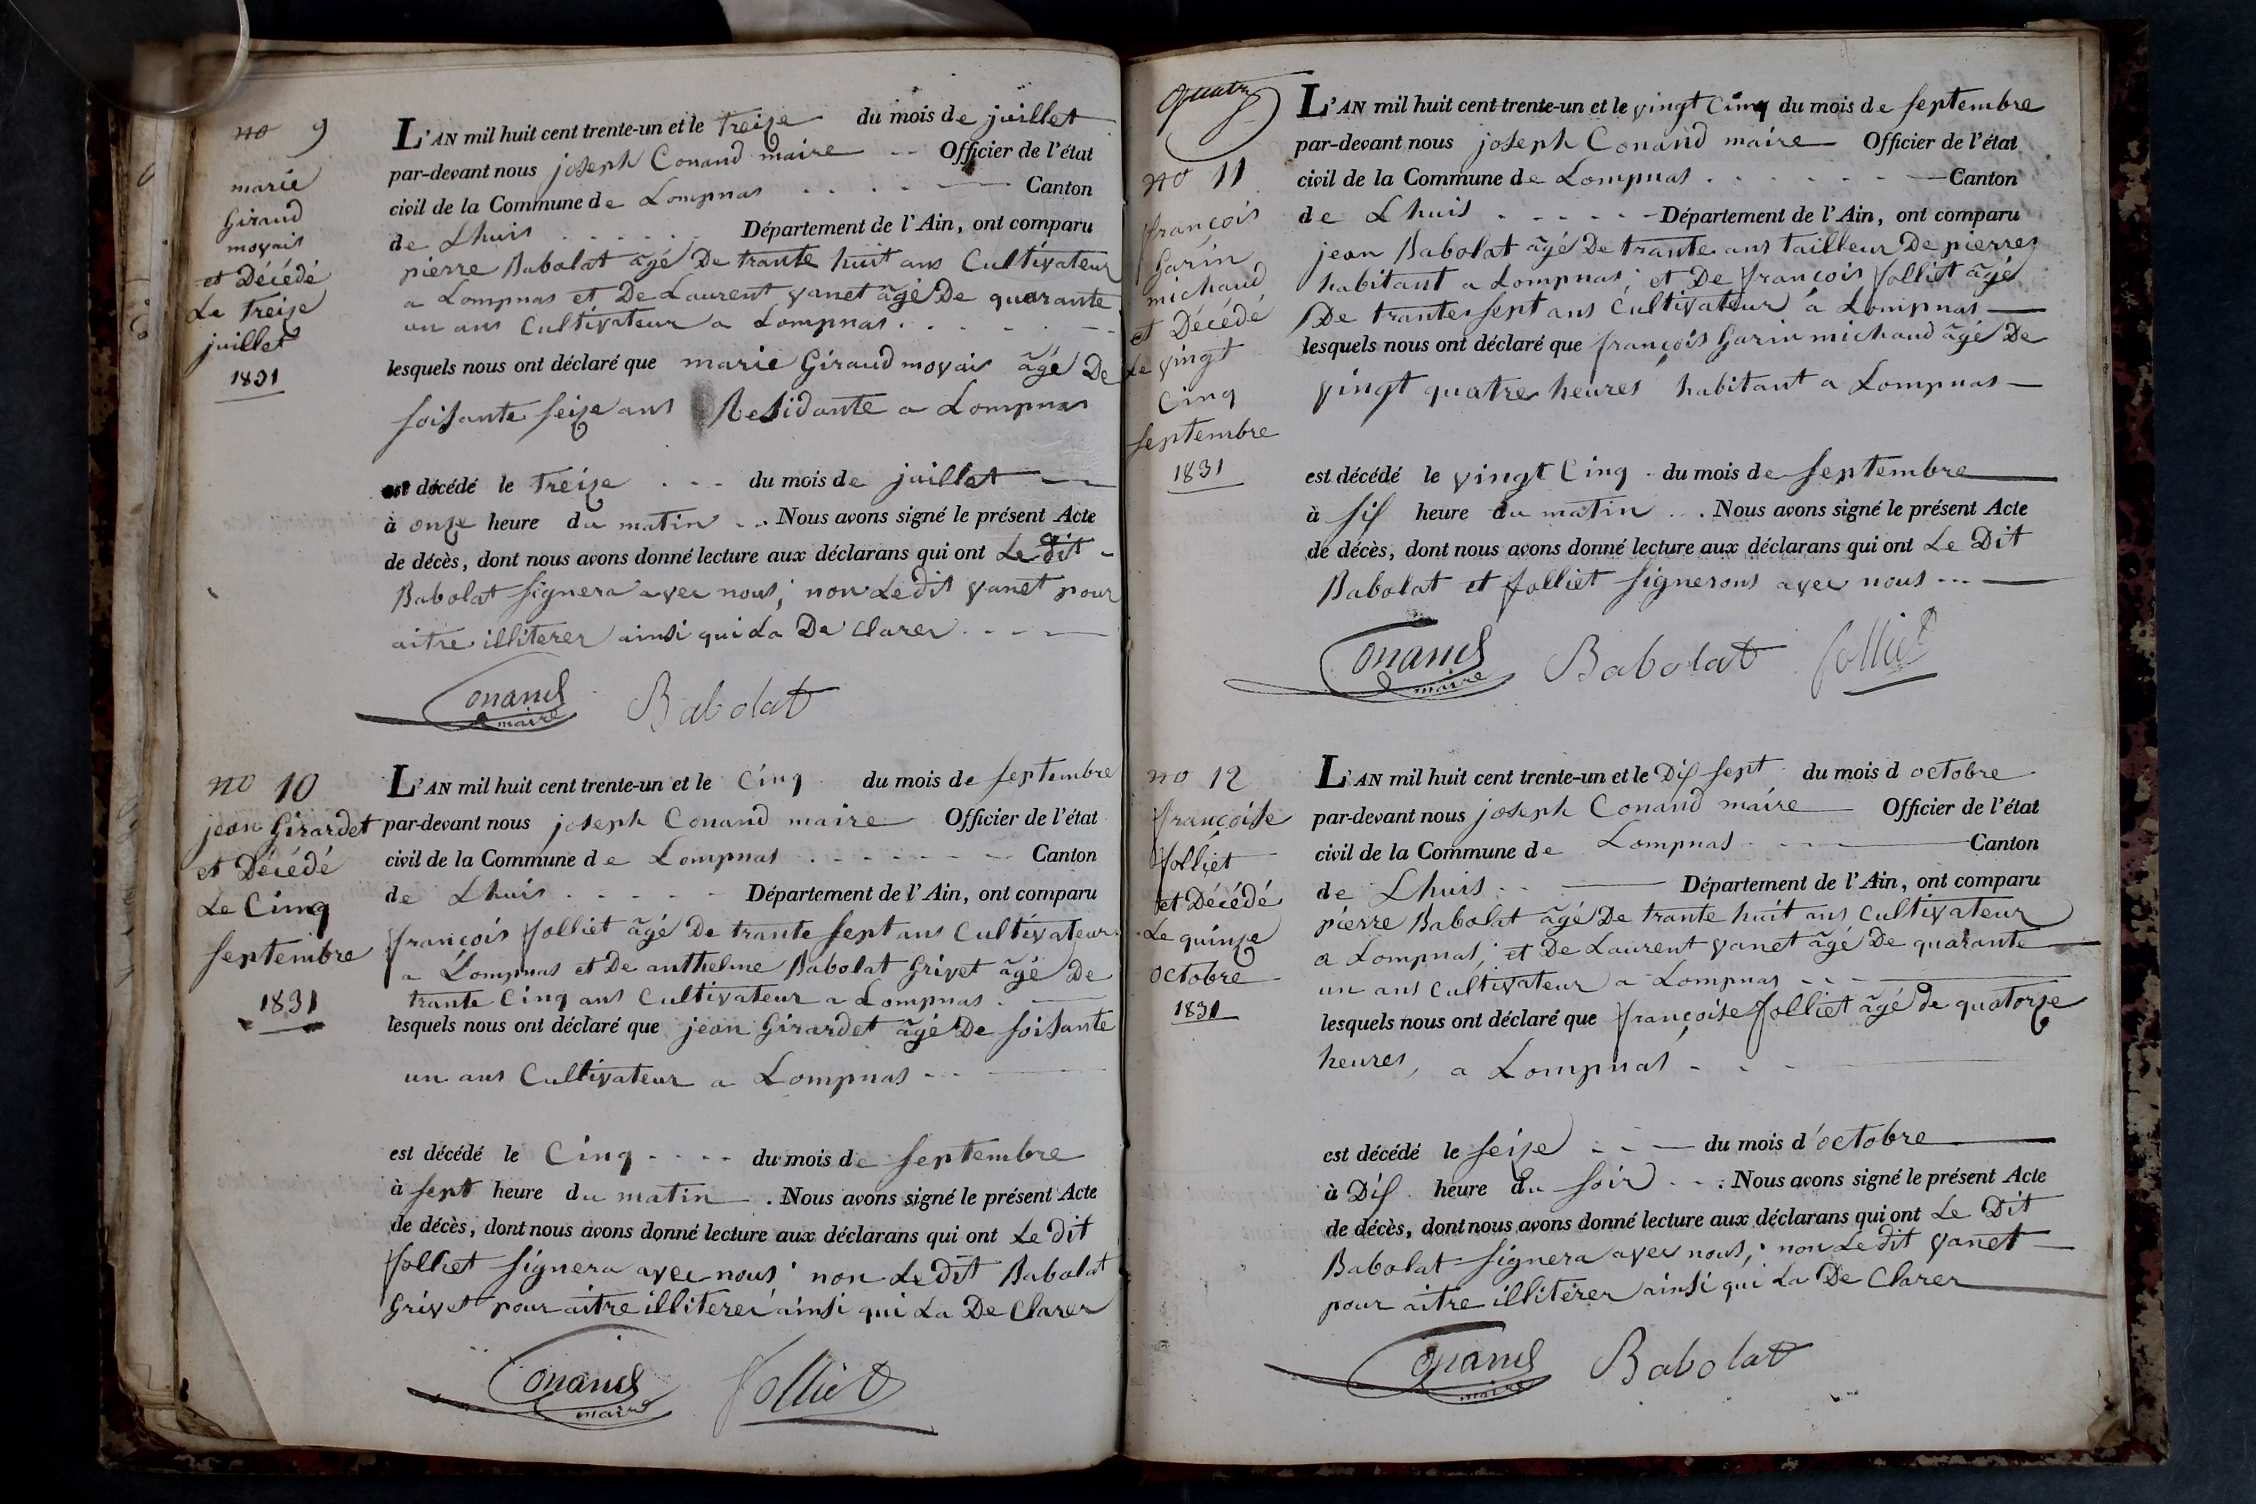 no 9
marie
Giraud
moyais
et Décédé
Le Treize
juillet
1831
L'AN mil huit cent trente-un et le Treize du mois de juillet
par-devant nous joseph Conand maire Officier de l'état
civil de la Commune de Lompnas Canton
de Lhuis Département de l'Ain, ont comparu
pierre Babolat âgé De trante huit ans Cultivateur
a Lompnas et De Laurent yanet âgé De quarante
un ans Cultivateur a Lompnas
lesquels nous ont déclaré que marie Giraud moyais âgé De
soisante seize ans Residante a Lompnas
est décédé le Treize du mois de juillet
à onze heure du matin Nous avons signé le présent Acte
de décès, dont nous avons donné lecture aux déclarans qui ont Le dit
Babolat signera avec nous; non Ledit yanet pour
aitre illiterer ainsi qui La De Clarer
Conand
maire
Babolat
no 10
jean Girardet
et Décédé
Le Cinq
septembre
1831
L'AN mil huit cent trente-un et le Cinq du mois de septembre
par-devant nous joseph Conand maire Officier de l'état
civil de la Commune de Lompnas Canton
de Lhuis Département de l'Ain, ont comparu
françois folliet âgé De trante sept ans Cultivateur
a Lompnas et De anthelme Babolat Grivet âgé De
trante Cinq ans Cultivateur a Lompnas
lesquels nous ont déclaré que jean Girardet âgé De soisante
un ans Cultivateur a Lompnas
est décédé le Cinq du mois de septembre
à sept heure du matin Nous avons signé le présent Acte
de décès, dont nous avons donné lecture aux déclarans qui ont Le dit
folliet signera avec nous; non Le dit Babolat
Grivet pour aitre illiterer ainsi qui La De Clarer
Conand
maire
folliet
quatre
no 11
françois
Garin
michaud
et Décédé
Le vingt
Cinq
septembre
1831
L'AN mil huit cent trente-un et le vingt Cinq du mois de septembre
par-devant nous joseph Conand maire Officier de l'état
civil de la Commune de Lompnas Canton
de Lhuis Département de l'Ain, ont comparu
jean Babolat âgé De trante ans tailleur De pierres
habitant a Lompnas; et De françois folliet âgé
De trante sept ans Cultivateur a Lompnas
lesquels nous ont déclaré que françois Garin michaud âgé De
vingt quatre heures habitant a Lompnas
est décédé le vingt Cinq du mois de septembre
à sis heure du matin Nous avons signé le présent Acte
de décès, dont nous avons donné lecture aux déclarans qui ont Le Dit
Babolat et folliet signerons avec nous
Conand
maire
Babolat
folliet
no 12
françoise
folliet
et Décédé
Le quinze
octobre
1831
L'AN mil huit cent trente-un et le Dis sept du mois d octobre
par-devant nous joseph Conand maire Officier de l'état
civil de la Commune de Lompnas Canton
de Lhuis Département de l'Ain, ont comparu
pierre Babolat âgé De trante huit ans Cultivateur
a Lompnas; et De Laurent yanet âgé De quarante
un ans Cultivateur a Lompnas
lesquels nous ont déclaré que françoise folliet âgé de quatorze
heures, a Lompnas
est décédé le seize du mois d'octobre
à Dis heure du soir Nous avons signé le présent Acte
de décès, dont nous avons donné lecture aux déclarans qui ont Le Dit
Babolat signera avec nous; non Le dit yanet
pour aitre illiterer ainsi qui La De Clarer
Conand
maire
Babolat